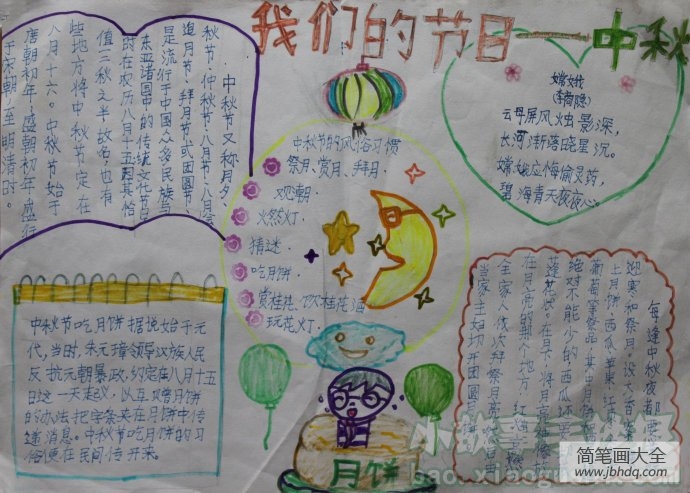 我们的节日一中秋
中秋节又称月夕、
秋节、仲秋节、八月节、八月会
追月节、拜月节或团圆节、
是流行于中国众多民族与
东亚诸国中的传统文化节日
时在农历八月十五因其恰
值三秋之半,故名,也有
些地方将中秋节定在
八月十六。中秋节始于
唐朝初年,盛朝初年,盛行
于宋朝,至明清时。
中秋节的风俗习惯
祭月、赏月、拜月、
观潮、
火然灯、
猜迷、
吃月饼、
赏桂花、饮桂花酒
玩花灯。
嫦娥
(李商隐)
云母屏风烛影深,
长河渐落晓星沉。
嫦娥应悔偷灵药,
碧海青天夜夜心。
中秋节吃月饼据说始于元
代,当时,朱元璋领导汉族人民
反抗元朝暴政,约定在八月十五
日这一天起义,以互赠月饼
的办法把字条夹在月饼中传
递消息。中秋节吃月饼的习
俗便在民间传开来。
月饼
每逢中秋夜都要
迎寒和祭月。设大香案
上月饼、西瓜、苹果、红
葡萄等祭品,其中月饼
绝对不能少的。西瓜还要
莲花状。在月下,将月亮神像
在月亮的那个方
全家人依次拜祭月亮
当家主妇切开团圆月饼
简笔画大全
www.jbhdq.com